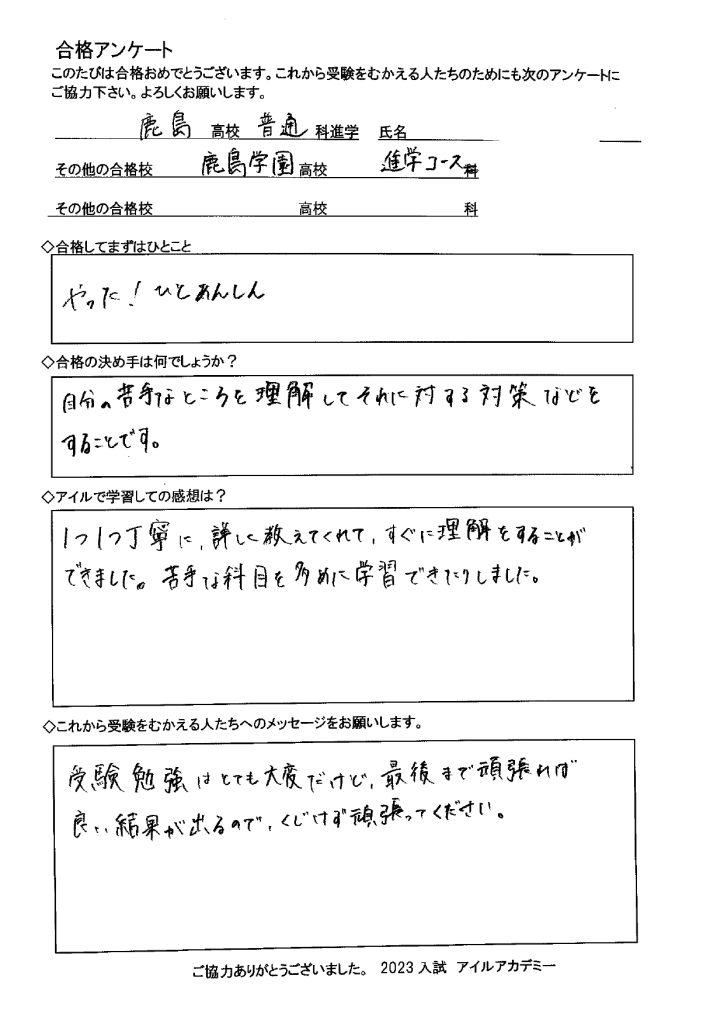 合格アンケート
このたびは合格おめでとうございます。これから受験をむかえる人たちのためにも次のアンケートに
ご協力下さい。よろしくお願いします。
鹿島 高校 普通 科進学 氏名
その他の合格校 鹿島学園 高校 進学コース 科
その他の合格校 高校 科
◇合格してまずはひとこと
やった！ひとあんしん
◇合格の決め手は何でしょうか？
自分の苦手なところを理解してそれに対する対策などを
することです。
◇アイルで学習しての感想は？
1つ1つ丁寧に、詳しく教えてくれて、すぐに理解をすることが
できました。苦手な科目を多めに学習できたりしました。
◇これから受験をむかえる人たちへのメッセージをお願いします。
受験勉強はとても大変だけど、最後まで頑張れば
良い結果が出るので、くじけず頑張ってください。
ご協力ありがとうございました。 2023入試 アイルアカデミー